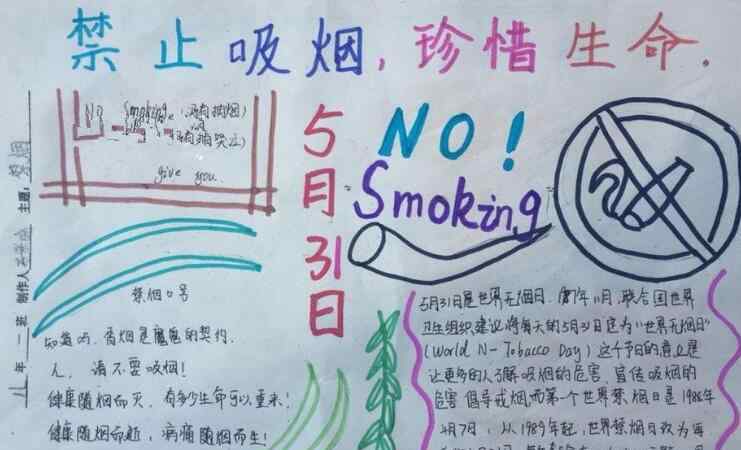 禁止吸烟，珍惜生命．
No Smoking
give you.
5月31日
NO！
Smoking
主题：禁烟
制作人
年一班
禁烟口号
知道吗，香烟是魔鬼的契约．
人，请不要吸烟！
健康随烟而灭，有多少生命可以重来！
健康随烟而逝，病痛随烟而生！
5月31日是世界无烟日．
11月，联合国世界
卫生组织建议将每天的5月31日定为"世界无烟日"
(World N- Tobacco Day) 这个节日的意义是
让更多的人了解吸烟的危害，宣传吸烟的
危害 倡导戒烟而第一个世界禁烟日是1988年
4月7日，从1989年起，世界禁烟日改为每